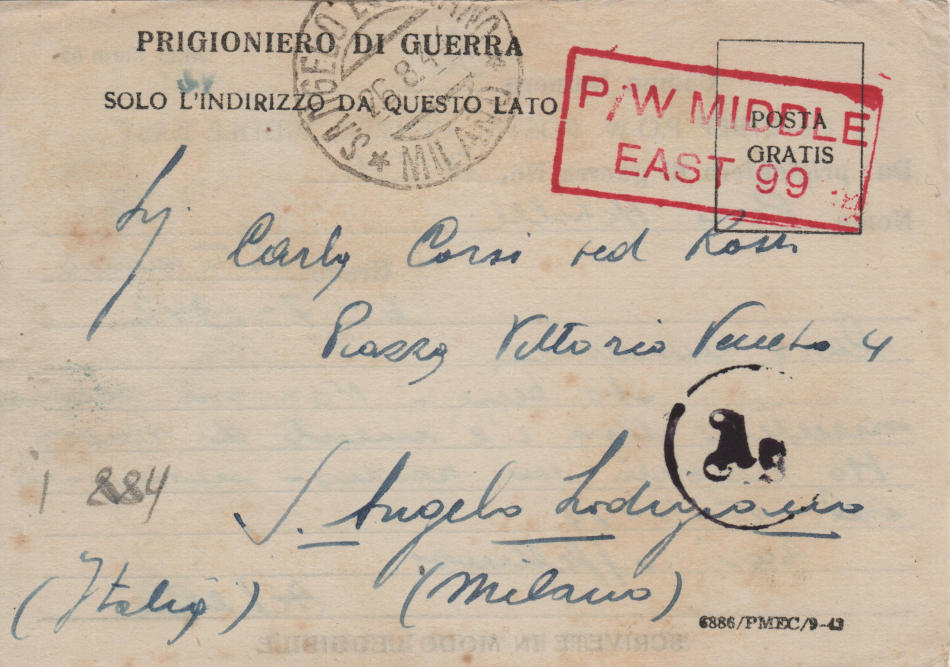 PRIGIONIERO DI GUERRA
SOLO L'INDIRIZZO DA QUESTO LATO
S.ANGELO LODIGIANO
26.8.4
MILANO
P/W MIDDLE
EAST 99
POSTA
GRATIS
Carla Corsi ved Rossi
Piazza Vittorio Veneto 4
As
884
S. Angelo Lodigiano
(Italia) (Milano)
6886/PMEC/9-43
SCRIVETE IN MODO LEGGIBILE